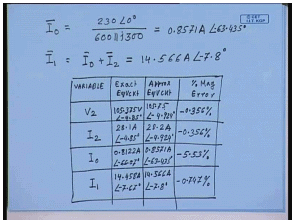 Ī₀ = 230∠0° / 600||j300 = 0.8571A ∠-63.435°
Ī₁ = Ī₀ + Ī₂ = 14.566A ∠-7.8°
VARIABLE Exact Eqvckt Approx Eqvckt % Mag Error
V2 105.375V ∠-4.85° ∠-4.924° -0.356%
I2 28.1A ∠-4.85° 28.2A ∠-4.924° -0.356%
I0 0.8122A 0.8571A ∠-63.43° -5.53%
I1 14.458A ∠-7.67° 14.566A ∠-7.8° -0.747%